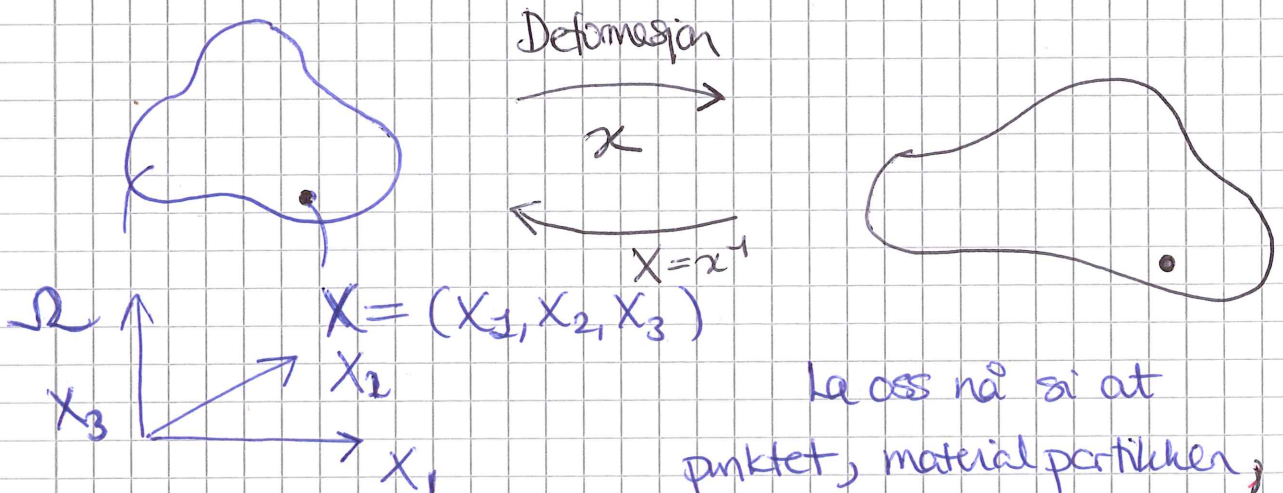 Deformasjon
x
X = x⁻¹
Ω
X = (X₁, X₂, X₃)
X₂
X₃
X₁
La oss nå si at
punktet, materialpartikkelen,